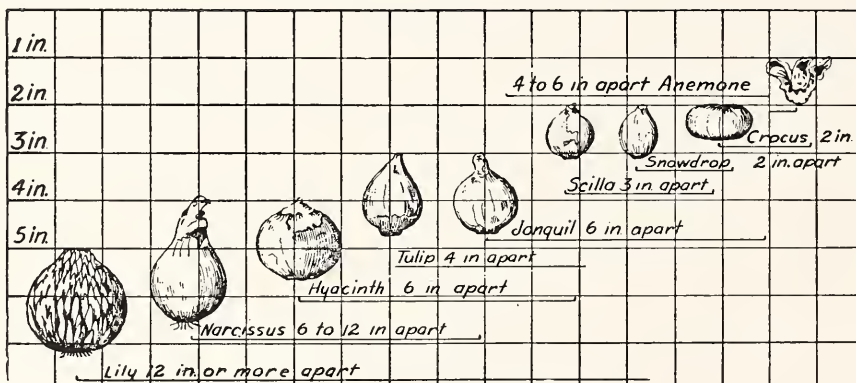 1 in.
4 to 6 in apart Anemone
2 in.
Crocus, 2 in.
3 in.
Snowdrop 2 in. apart
Scilla 3 in apart
4 in.
Jonquil 6 in apart
5 in.
Tulip 4 in apart
Hyacinth 6 in apart
Narcissus 6 to 12 in apart
Lily 12 in. or more apart